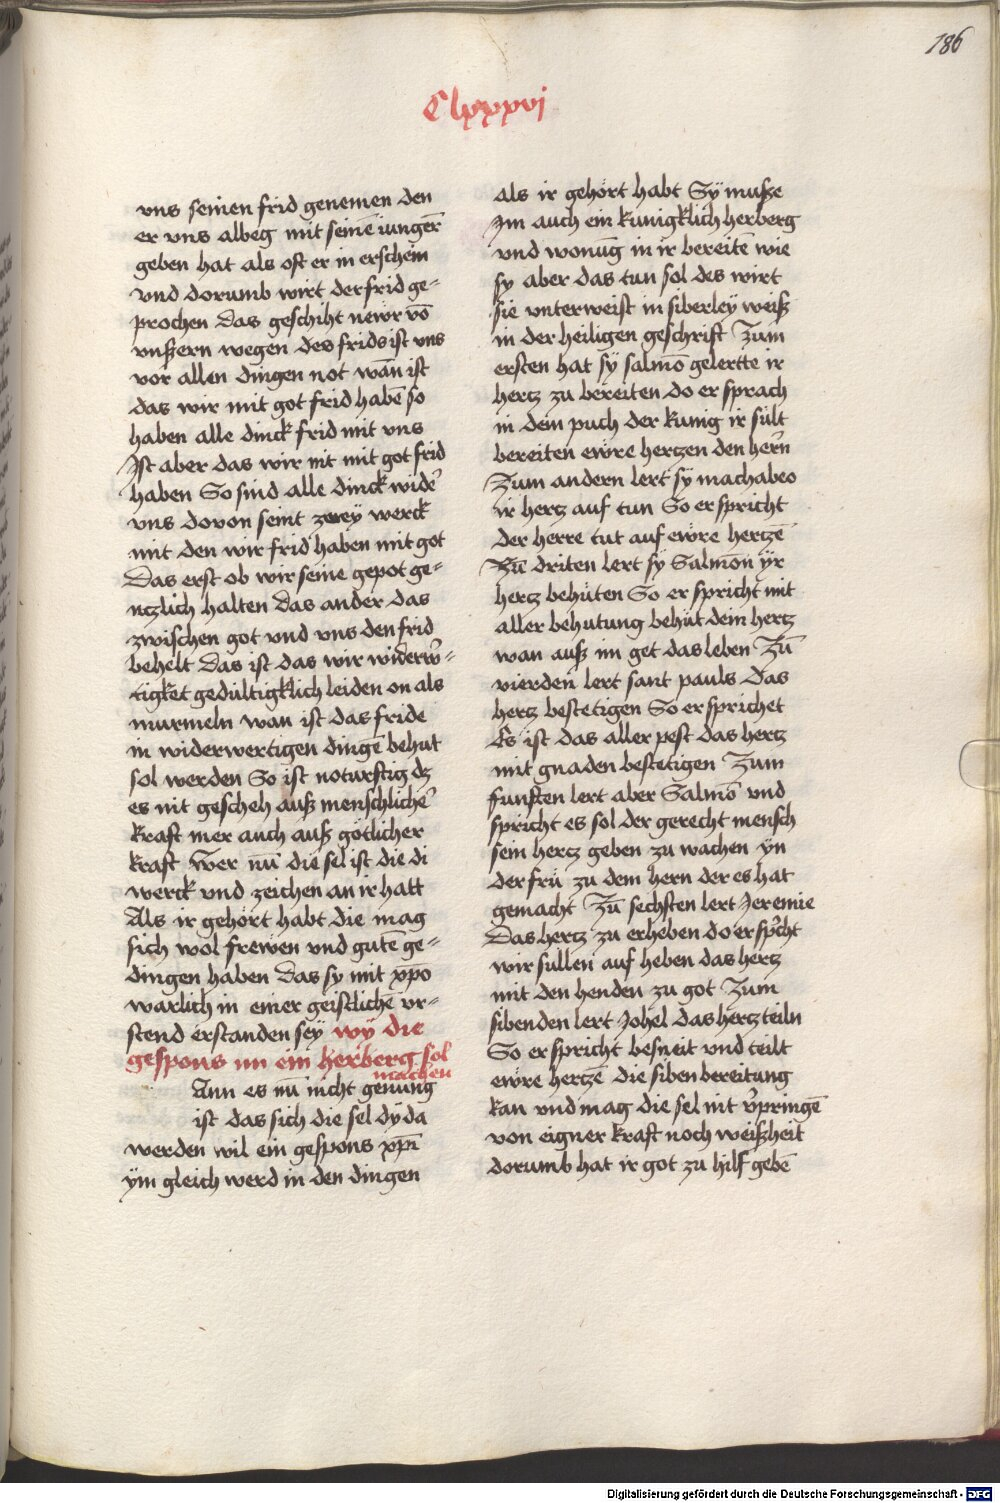 186
Clxxxvj
vns seinen frid genemen den
er vns albeg mit seinē iungern̄
geben hat als oft er in erschein
vnd dorumb wirt der frid ge=
prochen das geschiht newr vō
vnßern wegen des frids ist vns
vor allen dingen not wān ist
das wir mit got frid habē so
haben alle dinck frid mit vns
Ist aber das wir nit mit got frid
haben So sind alle dinck wider̄
vns dovon seint zweÿ werck
mit den wir frid haben mit got
Das erst ob wir seine gepot ge=
nczlich halten das ander das
zwischen got vnd vns den frid
behelt das ist das wir widerw̄=
tigket gedultigklich leiden on als
murmeln wan ist das fride
in widerwertigen dingē behut
sol werden So ist noturftig dz
es nit gescheh auß menschlicher̄
kraft mer auch auß götlicher
kraft Wer nū die sel ist die di
werck vnd zeichen an ir hatt
Als ir gehört habt die mag
sich wol frewen vnd gutē ge=
dingen haben das sy mit xp̄o
warlich in einer geistlichē vr=
stend erstanden seÿ wÿ die
gespons im ein herberg sol
machen
Ann es nū nicht genung
ist das sich die sel dÿ da
werden wil ein gespons xp̄i
ÿm gleich werd in den dingen
als ir gehört habt Sÿ muße
Im auch ein kunigklich herberg
vnd wonūg in ir bereitē wie
sy aber das tun sol des wirt
sie vnterweist in siberleÿ weiß
in der heiligen geschrift Zum
ersten hat sÿ salmō gelertte ir
hertz zu bereiten do er sprach
in dem puch der kunig ir sült
bereiten ewre hertzen den her̄n
Zum andern lert sÿ machabeo
ir hertz auf tun So er spricht
der herre tut auf ewre hertzē
Zū driten lert sÿ Salmōn ÿr
hertz behüten So er spricht mit
aller behutung behüt dein hertz
wan auß im get das leben Zū
vierden lert sant pauls das
hertz bestetigen So er sprichet
Es ist das aller pest das hertz
mit gnaden bestetigen Zum
funften lert aber Salmō vnd
spricht es sol der gerecht mensch
sein hertz geben zu wachen ÿn
der frü zu dem hern der es hat
gemacht Zū sechsten lert Jeremie
Das hertz zu erheben do er sp̄cht
wir sullen auf heben das hertz
mit den henden zu got Zum
sibenden lert Johel das hertz teiln
So er spricht besneit vnd teilt
ewre hertzē die siben bereitung
kan vnd mag die sel nit v̄pringē
von eigner kraft noch weißheit
dorumb hat ir got zu hilf gebē
Digitalisierung gefördert durch die Deutsche Forschungsgemeinschaft - DFG